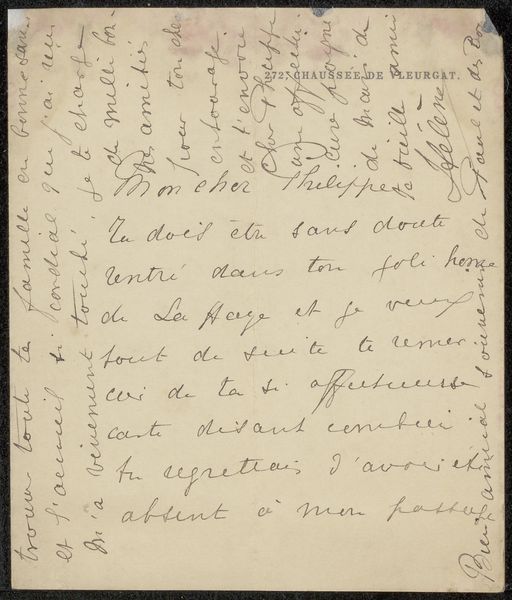 272, CHAUSSÉE DE VLEURGAT.
Mon cher Philippe
Tu dois être sans doute
rentré dans ton joli home
de La Haye et je veux
tout de suite te remer
cier de ta si affectueuse
carte disant combien
tu regrettais d'avoir été
absent à mon passage
trouver toute ta famille en bonne santé
et l'accueil si cordial que j'ai reçu
m'a vivement touché. Je te charge
de mille bon
nes amitiés
pour ton cher
entourage.
et t'envoie
cher Philippe
une affectu
euse poignée
de main de
ta vieille amie
Hélène
Bien amical souvenir de Paul et des